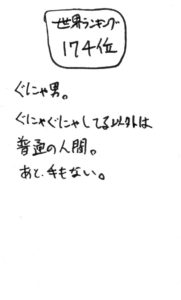 世界ランキング
174位
ぐにゃ男。
ぐにゃぐにゃしてる以外は
普通の人間。
あと、キもない。